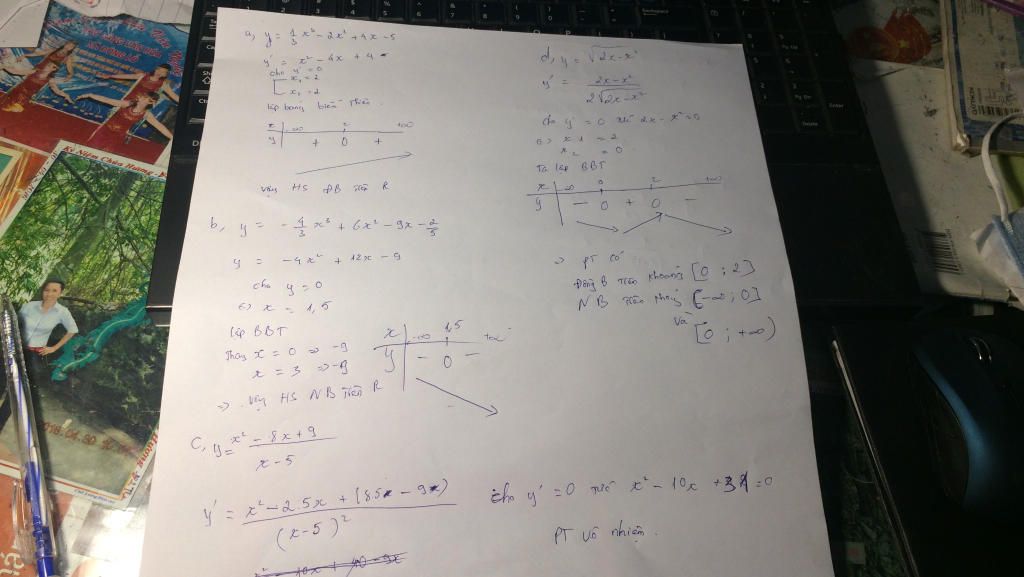 a, y = 1/3 x³ - 2x² + 4x - 5
y' = x² - 4x + 4
cho y' = 0
[ x₁ = 2
x₂ = 2
lập bảng biến thiên.
x -∞ 2 +∞
y + 0 +
Vậy HS ĐB trên R
b, y = -4/3 x³ + 6x² - 9x - 2/5
y = -4x² + 12x - 9
cho y = 0
⇔ x = 1,5
lập BBT
Thay x = 0 ⇒ -9
x = 3 ⇒ -9
⇒ Vậy HS NB trên R
x -∞ 1,5 +∞
y - 0 -
C, y = (x² - 8x + 9)/(x - 5)
y' = (x² - 2.5x + (8.5 - 9))/(x - 5)²
cho y' = 0 x² - 10x + 31 = 0
PT vô nhiệm.
d, y = √(2x - x²)
y' = (2x - x²)/(2√(2x - x²))
cho y' = 0 2x - x² = 0
⇔ x1 = 2
x2 = 0
Ta lập BBT
x -∞ 0 2 +∞
y - 0 + 0 -
⇒ PT có
Đồng B trên khoảng [0 ; 2]
NB trên khoảng [-∞ ; 0]
và [0 ; +∞)
Kỷ Niệm Chùa Hương
Shift
Delete